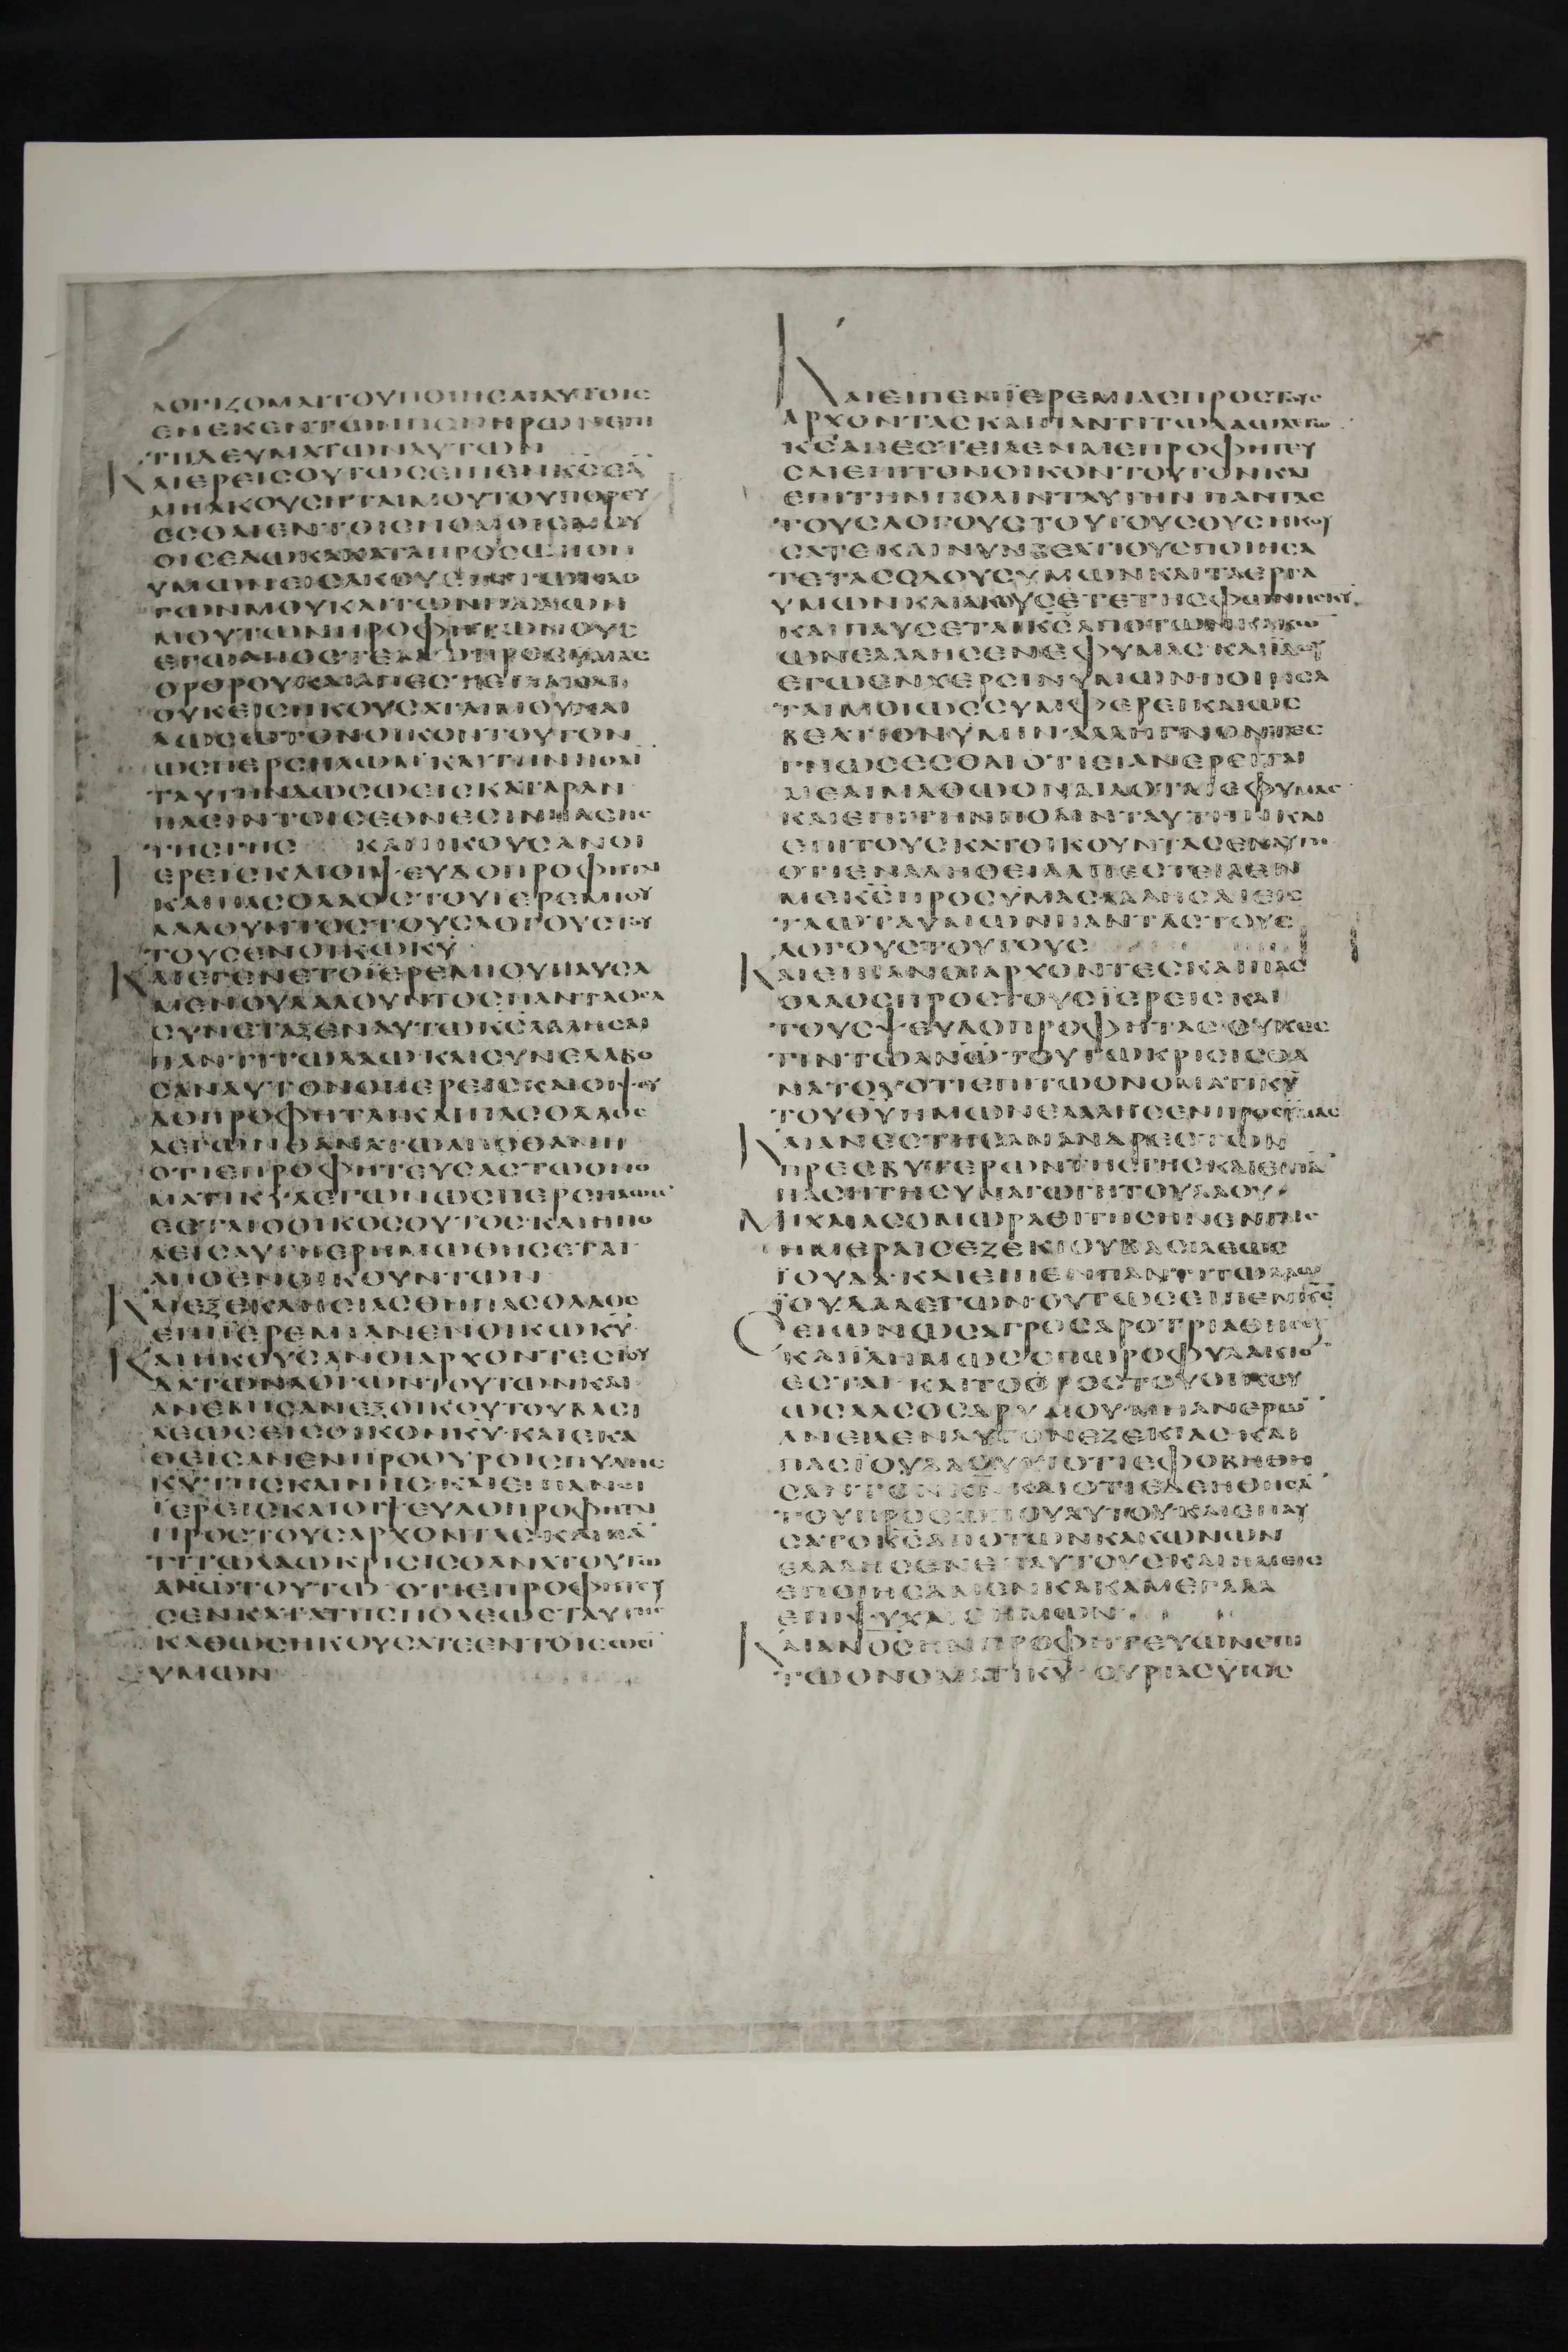 ΛΟΓΙΖΟΜΑΙΤΟΥΠΟΙΗCΑΙΑΥΤΟΙC
ΕΝΕΚΕΝΤΩΝΠΟΝΗΡΩΝΕΠΙ
ΤΗΔΕΥΜΑΤΩΝΑΥΤΩΝ
ΚΑΙΕΡΕΙCΟΥΤΩCΕΙΠΕΝΚCΕΑ
ΜΗΑΚΟΥCΗΤΑΙΜΟΥΤΟΥΠΟΡΕΥ
ΕCΘΑΙΕΝΤΟΙCΝΟΜΟΙCΜΟΥ
ΟΙCΕΔΩΚΑΚΑΤΑΠΡΟCΩΠΟΝ
ΥΜΩΝΕΙCΑΚΟΥΕΙΝΤΩΝΛΟ
ΓΩΝΜΟΥΚΑΙΤΩΝΠΑΙΔΩΝ
ΜΟΥΤΩΝΠΡΟΦΗΤΩΝΟΥC
ΕΓΩΑΠΟCΤΕΛΛΩΠΡΟCΥΜΑC
ΟΡΘΡΟΥΚΑΙΑΠΕCΤΕΙΛΑΚΑΙ
ΟΥΚΕΙCΗΚΟΥCΑΤΑΙΜΟΥΚΑΙ
ΔΩCΩΤΟΝΟΙΚΟΝΤΟΥΤΟΝ
ΩCΠΕΡCΗΛΩΜΚΑΙΤΗΝΠΟΛΙ
ΤΑΥΤΗΝΔΩCΩΕΙCΚΑΤΑΡΑΝ
ΠΑCΙΝΤΟΙCΕΘΝΕCΙΝΠΑCΗC
ΤΗCΓΗC ΚΑΙΗΚΟΥCΑΝΟΙ
ΙΕΡΕΙCΚΑΙΟΙΨΕΥΔΟΠΡΟΦΗΤΑΙ
ΚΑΙΠΑCΟΛΑΟCΤΟΥΙΕΡΕΜΙΟΥ
ΛΑΛΟΥΝΤΟCΤΟΥCΛΟΓΟΥCΤΟΥ
ΤΟΥCΕΝΟΙΚΩΚΥ
ΚΑΙΕΓΕΝΕΤΟΙΕΡΕΜΙΟΥΠΑΥCΑ
ΜΕΝΟΥΛΑΛΟΥΝΤΟCΠΑΝΤΑΟCΑ
CΥΝΕΤΑΞΕΝΑΥΤΩΚCΛΑΛΗCΑΙ
ΠΑΝΤΙΤΩΛΑΩΚΑΙCΥΝΕΛΑΒΟ
CΑΝΑΥΤΟΝΟΙΙΕΡΕΙCΚΑΙΟΙΨΕΥ
ΔΟΠΡΟΦΗΤΑΙΚΑΙΠΑCΟΛΑΟC
ΛΕΓΩΝΘΑΝΑΤΩΑΠΟΘΑΝΗ
ΟΤΙΕΠΡΟΦΗΤΕΥCΑCΤΩΟΝΟ
ΜΑΤΙΚΥΛΕΓΩΝΩCΠΕΡCΗΛΩΜ
ΕCΤΑΙΟΟΙΚΟCΟΥΤΟCΚΑΙΗΠΟ
ΛΕΙCΑΥΤΗΕΡΗΜΩΘΗCΕΤΑΙ
ΑΠΟΕΝΟΙΚΟΥΝΤΩΝ
ΚΑΙΕΞΕΚΛΗCΙΑCΘΗΠΑCΟΛΑΟC
ΕΠΙΙΕΡΕΜΙΑΝΕΝΟΙΚΩΚΥ
ΚΑΙΗΚΟΥCΑΝΟΙΑΡΧΟΝΤΕCΙΟΥ
ΔΑΤΩΝΛΟΓΩΝΤΟΥΤΩΝΚΑΙ
ΑΝΕΒΗCΑΝΕΞΟΙΚΟΥΤΟΥΒΑCΙ
ΛΕΩCΕΙCΟΙΚΟΝΚΥΚΑΙΕΚΑ
ΘΕΙCΑΝΕΝΠΡΟΘΥΡΟΙCΠΥΛΗC
ΚΥΤΗCΚΑΙΝΗCΚΑΙΕΙΠΑΝΟΙ
ΙΕΡΕΙCΚΑΙΟΙΨΕΥΔΟΠΡΟΦΗΤΑΙ
ΠΡΟCΤΟΥCΑΡΧΟΝΤΑCΚΑΙΠΑ
ΤΙΤΩΛΑΩΚΡΙCΙCΘΑΝΑΤΟΥΤΩ
ΑΝΩΤΟΥΤΩΟΤΙΕΠΡΟΦΗΤΕΥ
CΕΝΚΑΤΑΤΗCΠΟΛΕΩCΤΑΥΤΗC
ΚΑΘΩCΗΚΟΥCΑΤΕΕΝΤΟΙCΩCΙ
ΥΜΩΝ
ΚΑΙΕΙΠΕΝΙΕΡΕΜΙΑCΠΡΟCΤΟΥC
ΑΡΧΟΝΤΑCΚΑΙΠΑΝΤΙΤΩΛΑΩΛΕΓΩ
ΚCΑΠΕCΤΕΙΛΕΝΜΕΠΡΟΦΗΤΕΥ
CΑΙΕΠΙΤΟΝΟΙΚΟΝΤΟΥΤΟΝΚΑΙ
ΕΠΙΤΗΝΠΟΛΙΝΤΑΥΤΗΝΠΑΝΤΑC
ΤΟΥCΛΟΓΟΥCΤΟΥΤΟΥCΟΥCΗΚΟΥ
CΑΤΕΚΑΙΝΥΝΒΕΛΤΙΟΥCΠΟΙΗCΑ
ΤΕΤΑCΟΔΟΥCΥΜΩΝΚΑΙΤΑΕΡΓΑ
ΥΜΩΝΚΑΙΑΚΟΥCΕΤΕΤΗCΦΩΝΗCΚΥ
ΚΑΙΠΑΥCΕΤΑΙΚCΑΠΟΤΩΝΚΑΚΩ
ΩΝΕΛΑΛΗCΕΝΕΦΥΜΑCΚΑΙΙΔΟΥ
ΕΓΩΕΝΧΕΡCΙΝΥΜΩΝΠΟΙΗCΑ
ΤΑΙΜΟΙΩCCΥΜΦΕΡΕΙΚΑΙΩC
ΒΕΛΤΙΟΝΥΜΙΝΑΛΛΗΓΝΟΝΤΕC
ΓΝΩCΕCΘΑΙΟΤΙΕΙΑΝΕΡΕΙΤΑΙ
ΜΕΑΙΜΑΘΩΟΝΔΙΔΟΤΑΙΕΦΥΜΑC
ΚΑΙΕΠΙΤΗΝΠΟΛΙΝΤΑΥΤΗΝΚΑΙ
ΕΠΙΤΟΥCΚΑΤΟΙΚΟΥΝΤΑCΕΝΑΥΤΗ
ΟΤΙΕΝΑΛΗΘΕΙΑΑΠΕCΤΕΙΛΕΝ
ΜΕΚCΠΡΟCΥΜΑCΛΑΛΗCΑΙΕΙC
ΤΑΩΤΑΥΜΩΝΠΑΝΤΑCΤΟΥC
ΛΟΓΟΥCΤΟΥΤΟΥC
ΚΑΙΕΙΠΑΝΟΙΑΡΧΟΝΤΕCΚΑΙΠΑC
ΟΛΑΟCΠΡΟCΤΟΥCΙΕΡΕΙCΚΑΙ
ΤΟΥCΨΕΥΔΟΠΡΟΦΗΤΑCΟΥΚΕC
ΤΙΝΤΩΑΝΩΤΟΥΤΩΚΡΙCΙCΘΑ
ΝΑΤΟΥΟΤΙΕΠΙΤΩΟΝΟΜΑΤΙΚΥ
ΤΟΥΘΥΗΜΩΝΕΛΑΛΗCΕΝΠΡΟCΗΜΑC
ΚΑΙΑΝΕCΤΗCΑΝΑΝΔΡΕCΤΩΝ
ΠΡΕCΒΥΤΕΡΩΝΤΗCΓΗCΚΑΙΕΙΠΑ
ΠΑCΗΤΗCΥΝΑΓΩΓΗΤΟΥΛΑΟΥ
ΜΙΧΑΙΑCΟΜΩΡΑΘΙΤΗCΗΝΕΝΤΑΙC
ΗΜΕΡΑΙCΕΖΕΚΙΟΥΒΑCΙΛΕΩC
ΙΟΥΔΑΚΑΙΕΙΠΕΝΠΑΝΤΙΤΩΛΑΩ
ΙΟΥΔΑΛΕΓΩΝΟΥΤΩCΕΙΠΕΝΚC
CΕΙΩΝΩCΑΓΡΟCΑΡΟΤΡΙΑΘΗCΕ
ΚΑΙΙΛΗΜΩCΟΠΩΡΟΦΥΛΑΚΙΟ
ΕCΤΑΙΚΑΙΤΟΟΡΟCΤΟΥΟΙΚΟΥ
ΩCΑΛCΟCΔΡΥΜΟΥΜΗΑΝΕΡΩ
ΑΝΕΙΛΕΝΑΥΤΟΝΕΖΕΚΙΑCΚΑΙ
ΠΑCΙΟΥΔΑΟΥΧΙΟΤΙΕΦΟΒΗΘΗ
CΑΝΤΟΝΚΝΚΑΙΟΤΙΕΔΕΗΘΗCΑ
ΤΟΥΠΡΟCΩΠΟΥΑΥΤΟΥΚΑΙΕΠΑΥ
CΑΤΟΚCΑΠΟΤΩΝΚΑΚΩΝΩΝ
ΕΛΑΛΗCΕΝΕΠΑΥΤΟΥCΚΑΙΗΜΕΙC
ΕΠΟΙΗCΑΜΕΝΚΑΚΑΜΕΓΑΛΑ
ΕΠΙΨΥΧΑCΗΜΩΝ
ΚΑΙΑΝΟCΗΝΠΡΟΦΗΤΕΥΩΝΕΠΙ
ΤΩΟΝΟΜΑΤΙΚΥΟΥΡΙΑCΥΙΟC